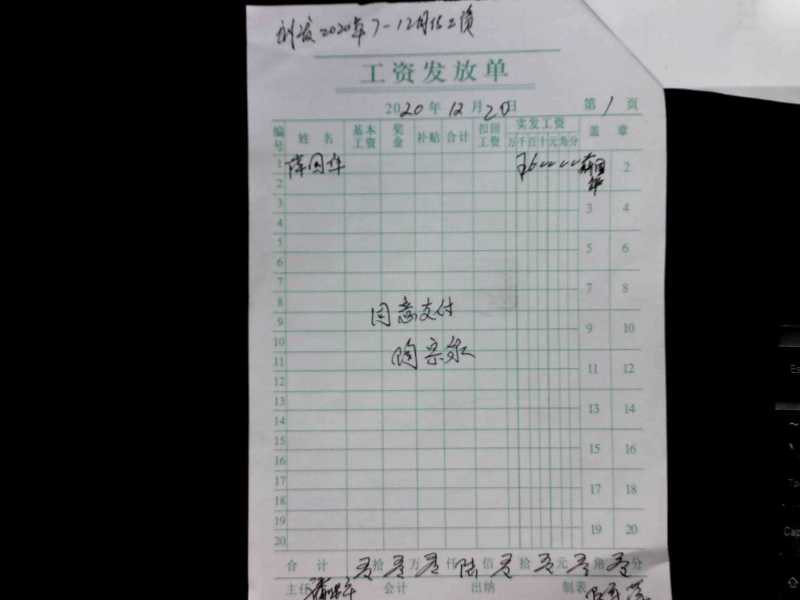 2020年7-12月份工资
工资发放单
2020年12月20日 第1页
编号 姓名 基本工资 奖金 补贴 合计 扣回工资 实发工资 盖章
万千百十元角分
1 薛国华 薛国华 2
2
3 3 4
4
5 5 6
6
7 7 8
8
同意支付
9 9 10
10
11 11 12
12
13 13 14
14
15 15 16
16
17 17 18
18
19 19 20
20
合计 拾 万 仟陆佰 拾 元 角 分
主任 会计 出纳 制表